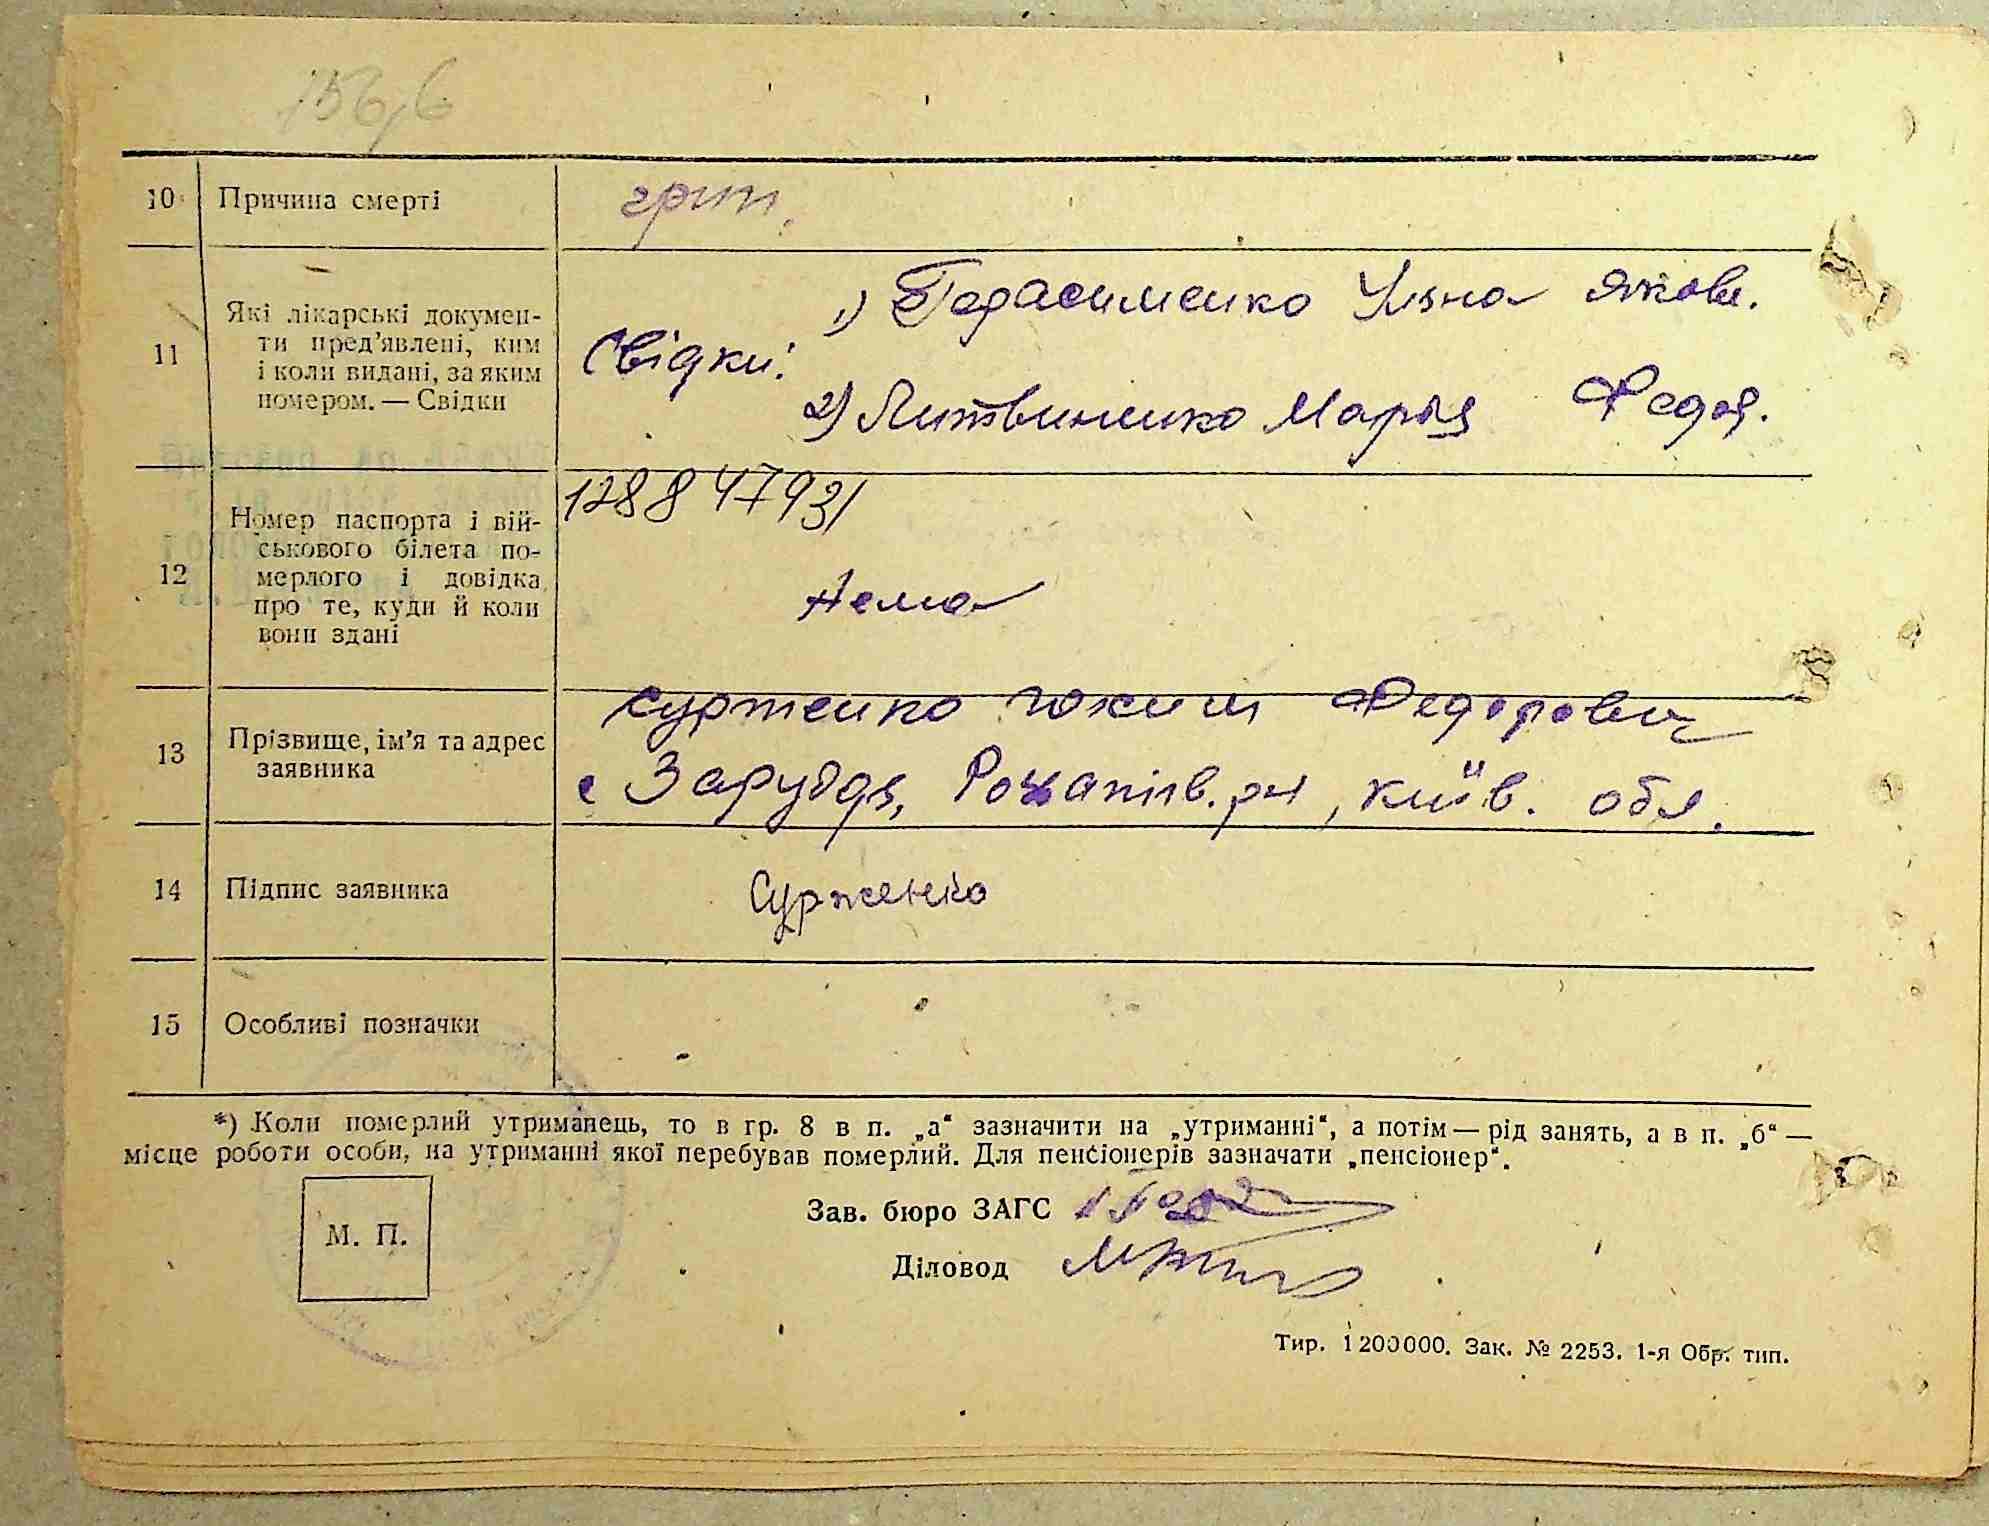 156,6
10 Причина смерті грип.
11 Які лікарські докумен-
ти пред'явлені, ким
і коли видані, за яким
номером. — Свідки
Свідки:
1) Герасименко Уляна Яковл.
2) Литвиненко Марія Федор.
12 Номер паспорта і вій-
ськового білета по-
мерлого і довідка
про те, куди й коли
вони здані
128847931
Нема
13 Прізвище, ім'я та адрес
заявника
Сурженко Юхим Федорович
с Зарубя, Рокитнів. рн, київ. обл.
14 Підпис заявника Сурженко
15 Особливі позначки
*) Коли померлий утриманець, то в гр. 8 в п. „а“ зазначити на „утриманні“, а потім — рід занять, а в п. „б“ —
місце роботи особи, на утриманні якої перебував померлий. Для пенсіонерів зазначати „пенсіонер“.
М. П.
Зав. бюро ЗАГС
Діловод
Тир. 1 200 000. Зак. № 2253. 1-я Обр. тип.